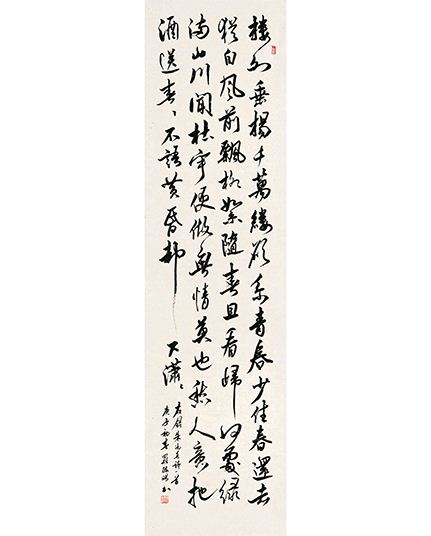 樓外垂楊千萬縷欲系青春少住春還去
猶自風前飄柳絮隨春且看歸何處綠
滿山川聞杜宇便做無情莫也愁人意把
酒送春、不語黃昏却下瀟、
右錄朱淑真詩一首
庚子初春 書